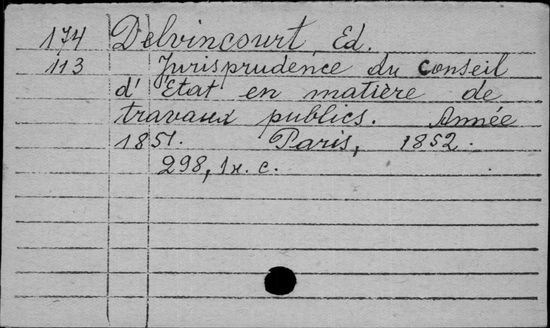 174 Delvincourt, Ed.
113 Jurisprudence du Conseil
d'Etat en matière de
travaux publics. Année
1851. Paris, 1852.
298, 1 н. с.